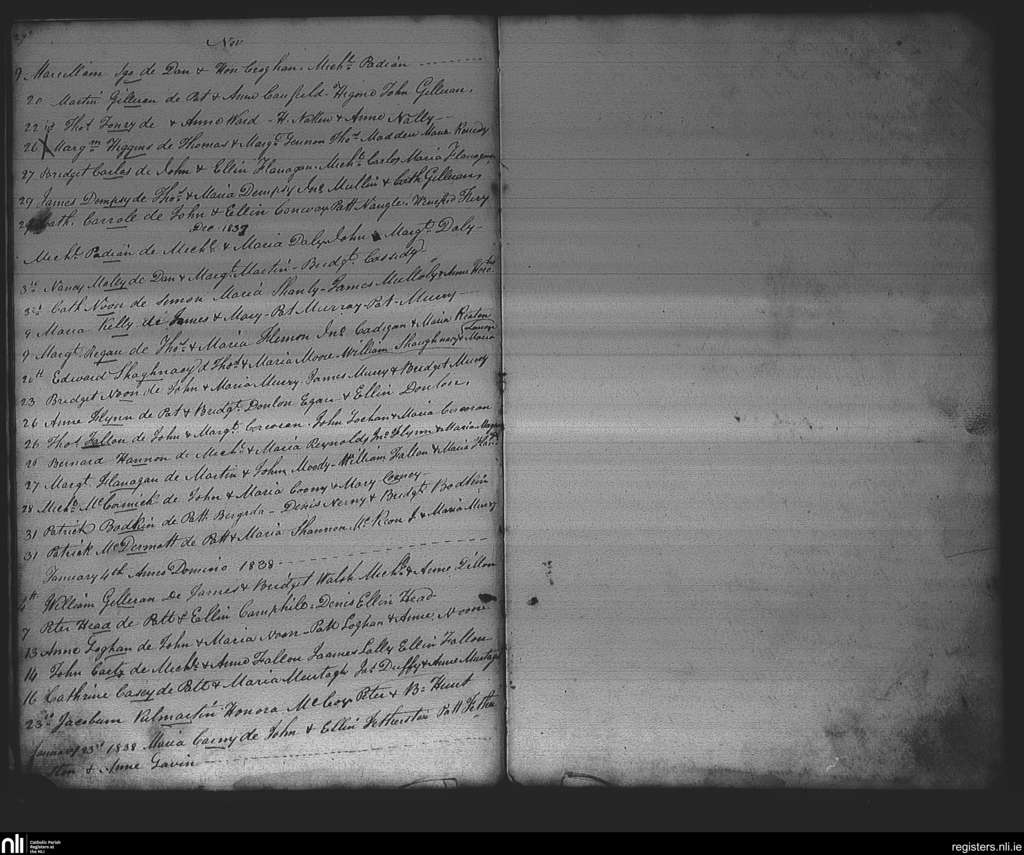 Nov
9 Marcellam Ego de Dan & Hon Geoghan. Michl. Padian
20 Martin Gilleran de Pat & Anne Caufield. Higono John Gilleran.
22 Thos. de & Anne Ward - H. Nallen & Anne Nally
26 Margm Higgins de Thomas & Margt. Gennon Thos. Madden Maria Kenedy
27 Bridget Carlos de John & Ellin Flanagan. Michl. Carlos Maria Flanagan
29 James Dempsy de Thos. & Maria Dempsy Jno. Mullin & Cath Gilleran,
29 Cath. Carrole de John & Ellin Conway Patt Naugle. Winefrd Fievy
Dec 1837
Michl. Padian de Michl. & Maria Daly John & Margt. Daly
3d Nancy Molloy de Dan & Margt. Martin - Bridgt. Cassidy
3d Cath Noon de Simon Maria Shanly - James Mulloly & Anne
9 Maria Kelly de James & Mary - Pat Murray - Pat - Murry
9 Margt. Regan de Thos. & Maria Hernon Jno. Cadigan & Maria Keaton
20th Edward Shaghnasy d Thos. & Maria Moore William Shaughnasy & Maria
23 Bridget Noon de John & Maria Murry. James Murry & Bridget Murry
26 Anne Flynn de Pat & Bridgt. Donlon Egan & Ellin Donlon.
26 Thos. Fallon de John & Margt. Corcoran. John Lochan & Maria Corcoran
26 Bernard Hannon de Michl. & Maria Reynolds Jno. Flynn & Maria
27 Margt. Flanagan de Martin & John Moody - William Fallon & Maria
28 Michl. McCormick de John & Maria Coony & Mary Cooney
31 Patrick Bodkin de Patt. Bergeda - Denis Nerny & Bridgt. Bodkin
31 Patrick McDermott de Patt & Maria Shannon McKeon J. & Maria Murry
January 4th Anno Domino 1838
4th William Gilleran De James & Bridget Walsh Michl. & Anne Dillon
7 Peter Head de Patt & Ellin Camphile - Denis Ellin Head
13 Anne Loghan de John & Maria Noon - Patt Loghan & Anne Noone
14 John de Michl. & Anne Fallon James Lally Ellin Fallon
16 Cathrine Casey de Patt & Maria Murtagh Jas. Duffy & Anne Murtagh
23d Jacobum Kilmartin Honora McCoy Peter & Br. Hunt
January 23d 1838 Maria Carny de John & Ellin Fetherstin Patt Fether
ston & Anne Gavin
nli
Catholic Parish
Registers at
the NLI
registers.nli.ie